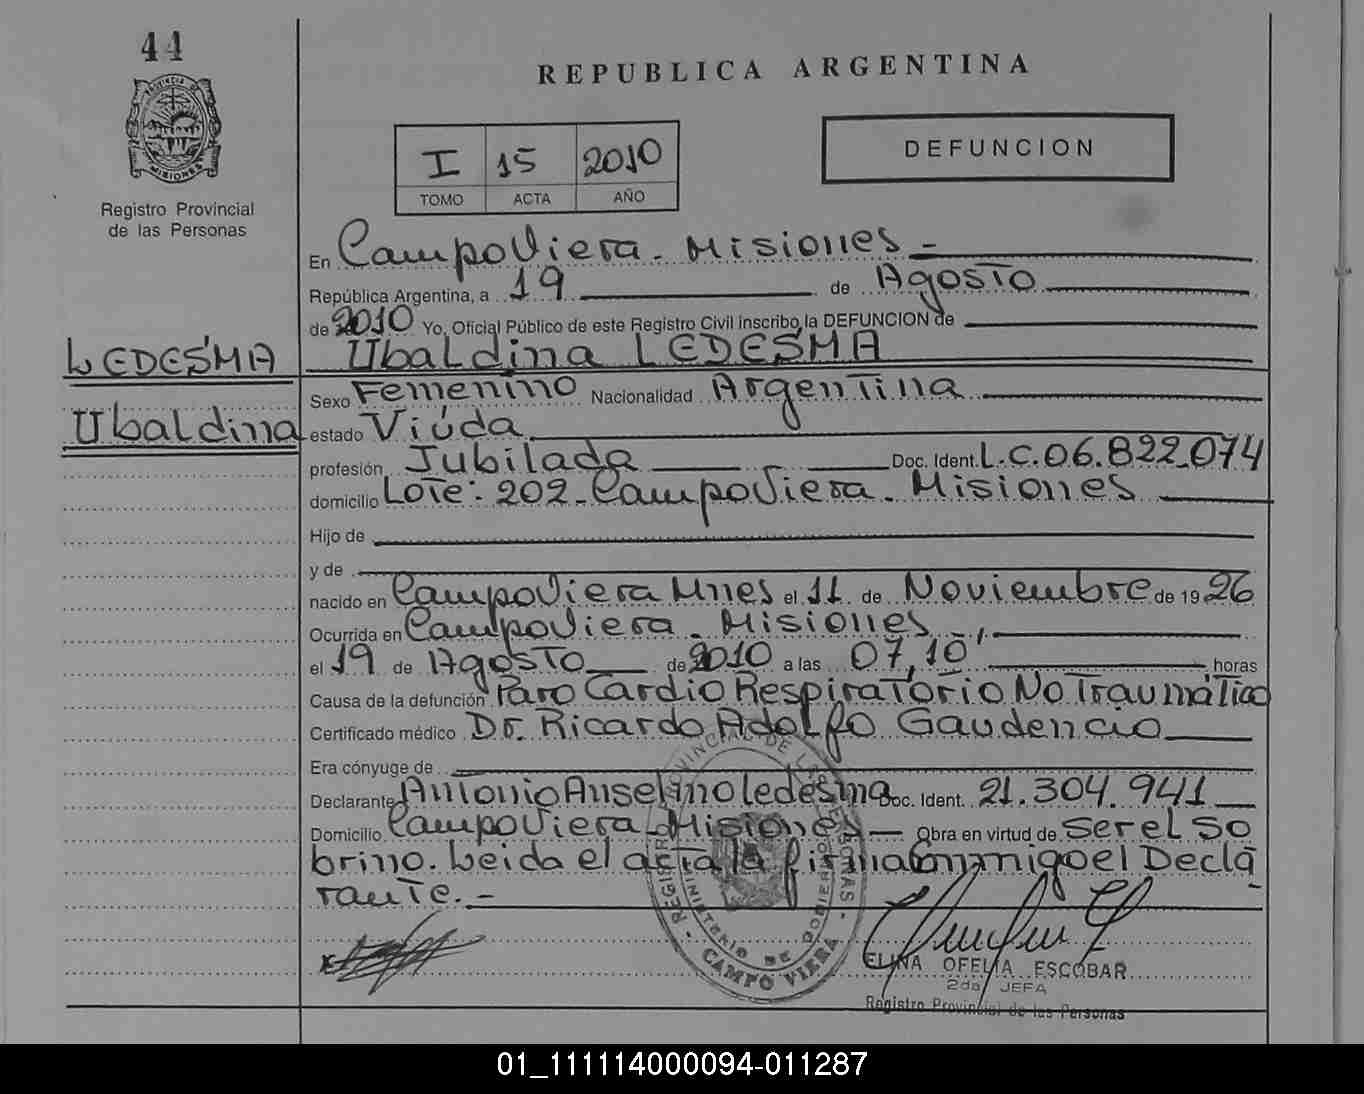 44
PROVINCIA DE
MISIONES
Registro Provincial
de las Personas
LEDESMA
Ubaldina
REPUBLICA ARGENTINA
I 15 2010
TOMO ACTA AÑO
DEFUNCION
En Campo Viera - Misiones -
República Argentina, a 19 de Agosto
de 2010 Yo, Oficial Público de este Registro Civil inscribo la DEFUNCION de
Ubaldina LEDESMA
Sexo Femenino Nacionalidad Argentina
estado Viúda
profesión Jubilada Doc. Ident. L.C. 06.822.074
domicilio Lote: 202 - Campo Viera - Misiones
Hijo de
y de
nacido en Campo Viera Mnes el 11 de Noviembre de 1926
Ocurrida en Campo Viera - Misiones -
el 19 de Agosto de 2010 a las 07,10' horas
Causa de la defunción Paro Cardio Respiratorio No Traumático
Certificado médico Dr. Ricardo Adolfo Gaudencio
Era cónyuge de
Declarante Antonio Anselmo Ledesma Doc. Ident. 21.304.941
Domicilio Campo Viera - Misiones - Obra en virtud de ser el so
brino. Leida el acta la firma Conmigo el Decla
rante. -
REGISTRO PROVINCIAL DE LAS PERSONAS
MINISTERIO DE GOBIERNO
CAMPO VIERA
ELINA OFELIA ESCOBAR
2da JEFA
Registro Provincial de las Personas
01_111114000094-011287